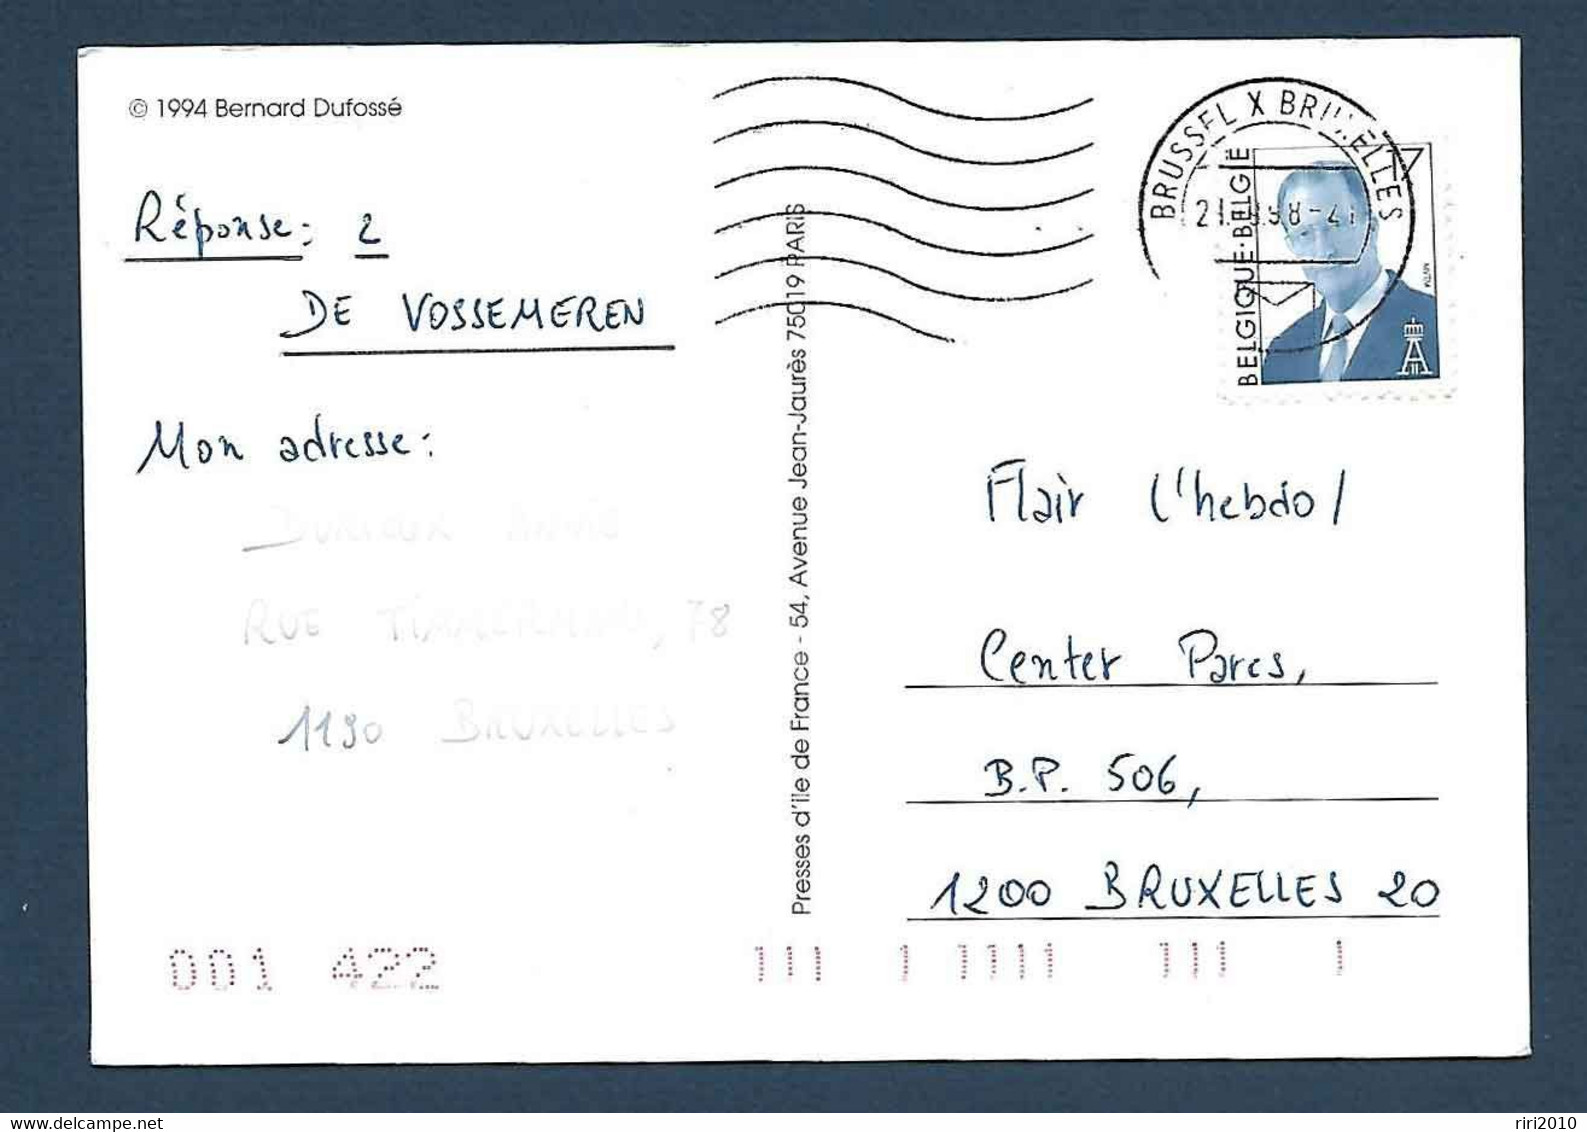 © 1994 Bernard Dufossé
Réponse: 2
DE VOSSEMEREN
Mon adresse:
RUE 78
1190 BRUXELLES
Presses d'Ile de France - 54, Avenue Jean-Jaurès 75019 PARIS
BRUSSEL X BRUXELLES
BELGIQUE·BELGIË
17
Flair l'hebdo/
Center Parcs,
B.P. 506,
1200 BRUXELLES 20
001 422
delcampe.net
riri2010